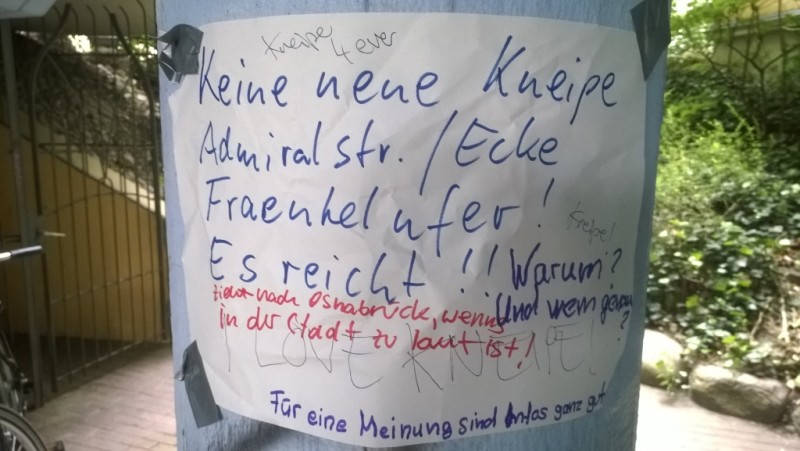 Kneipe
4 ever
Keine neue Kneipe
Admiralstr. / Ecke
Fraenkelufer!
Kneipe!
Es reicht !! Warum?
Und wem genau
?
zieht nach Osnabrück, wenns
in der Stadt zu laut ist!
I LOVE KNEIPE!
Für eine Meinung sind Infos ganz gut